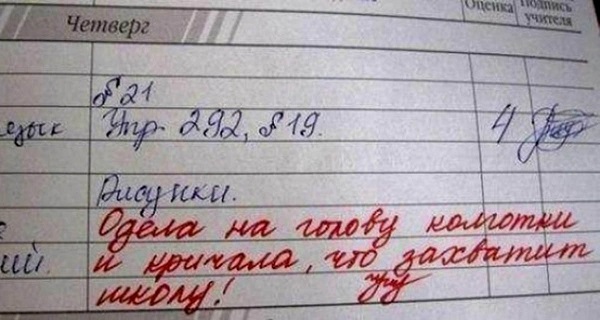 Оценка Подпись
учителя
Четверг
№ 21
язык Упр. 292, № 19. 4
Рисунки.
Одела на голову колготки
и кричала, что захватит
школу!